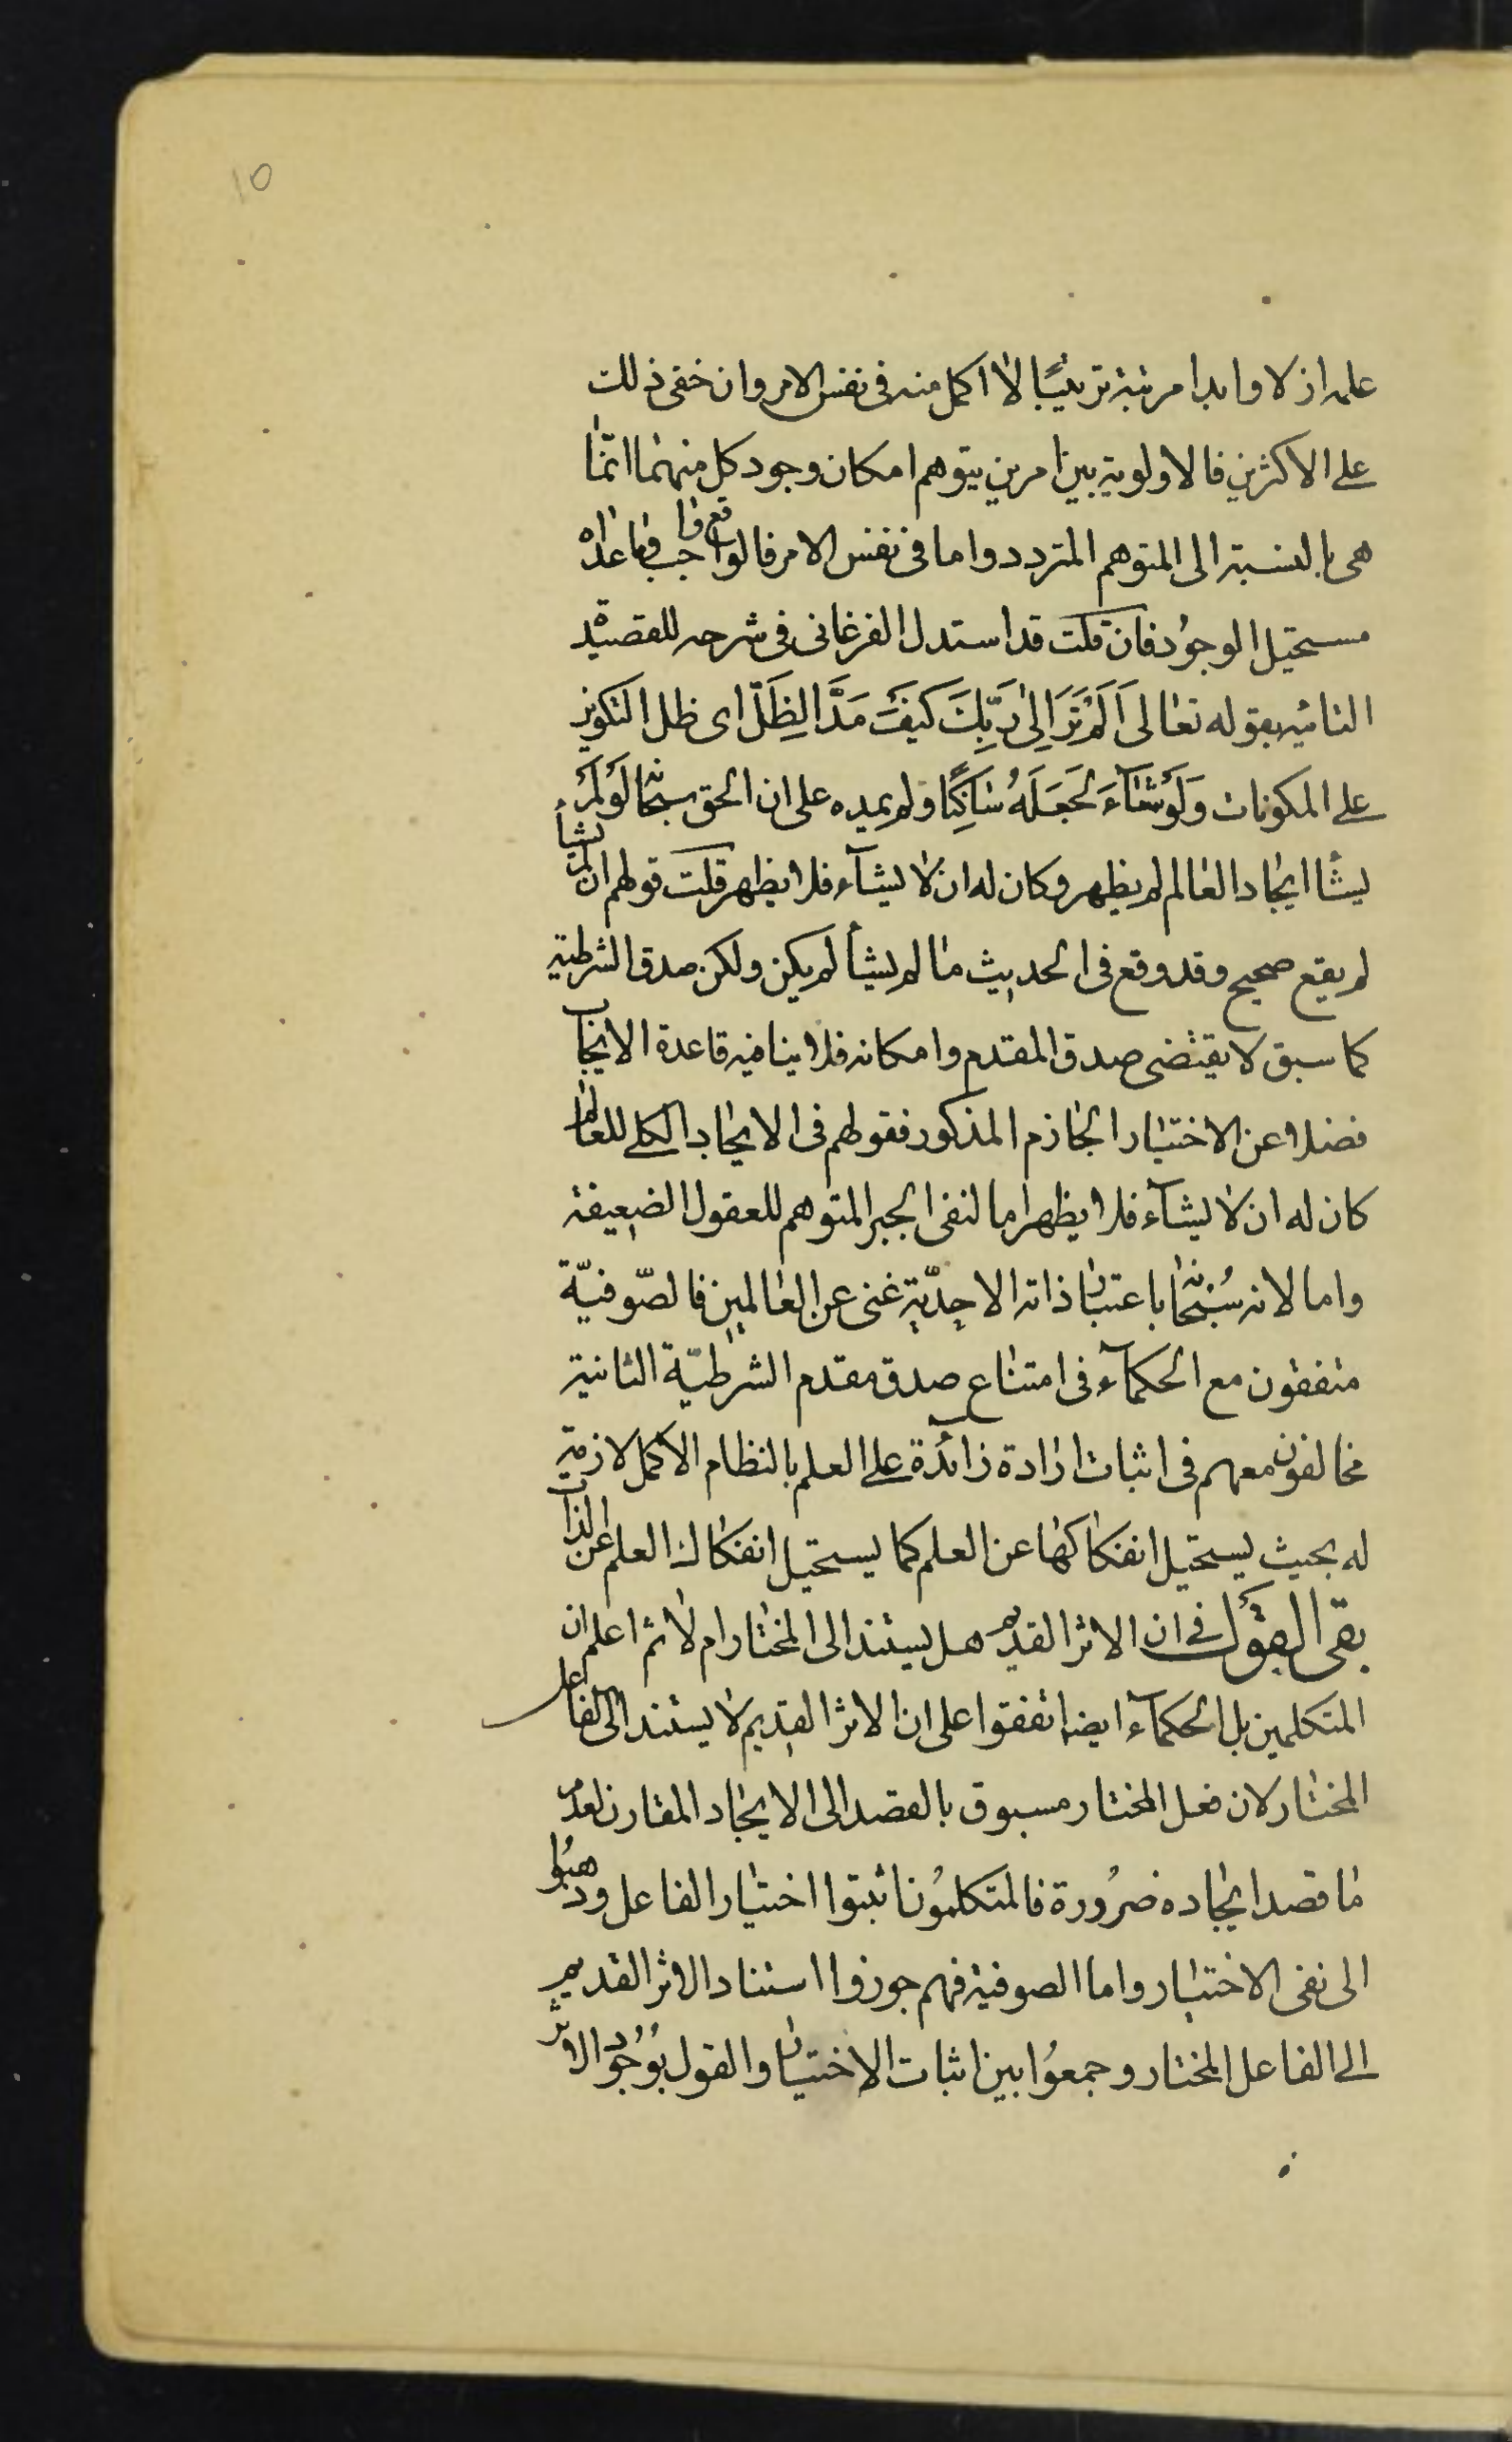 10
علمه ازلا وابدا مرتبة ترتيبًا لا اكمل منه فى نفس الامر وان خفى ذلك
على الاكثرين فالاولوية بين امرين يتوهم امكان وجود كل منهما انّما
هى بالنسبة الى المتوهم المتردد واما فى نفس الامر فالواقع واجب وما عداه
مستحيل الوجود فان قلت قد استدل الفرغانى فى شرحه للقصيدة
التائيه بقوله تعالى اَلَمْ تَرَ اِلىٰ رَبِّكَ كَيْفَ مَدَّ الظِلَّ اى ظل التكوين
على المكونات وَلَوْ شَآءَ لَجَعَلَهُ سَاكِنًا ولم يمده على ان الحق سبحانه لَو لَمْ
يشأ ايجاد العالم لم يظهر وكان له ان لا يشآء فلا يظهر قلت قولهم ان لم يشأ
لم يقع صحيح وقد وقع فى الحديث ما لم يشأ لم يكن ولكن صدق الشرطية
كما سبق لا يقتضى صدق المقدم وامكانه فلا ينافيه قاعدة الايجاب
فضلا عن الاختيار الجازم المذكور فقولهم فى الايجاد الكلى للعالم
كان له ان لا يشآء فلا يظهر اما لنفى الجبر المتوهم للعقول الضعيفة
واما لانه سُبْحانه باعتبار ذاته الاحِدّيةِ غنى عن العالمين فالصّوفيّة
متفقون مع الحكمآء فى امتناع صدق مقدم الشرطيّة الثانية
مخالفون معهم فى اثبات ارادة زائدة على العلم بالنظام الاكمل لازمة
له بحيث يستحيل انفكاكها عن العلم كما يستحيل انفكاك العلم عن الذات
بقى القوْل فى ان الاثر القديم هل يستند الى المختار ام لا ثم اعلم ان
المتكلمين بل الحكمآء ايضا اتفقوا على ان الاثر القديم لا يستند الى الفاعل
المختار لان فعل المختار مسبوق بالقصد الى الايجاد المقارن لعدم
ما قصد ايجاده ضرُورة فالمتكلموُن اثبتوا اختيار الفاعل وذهبوُا
الى نفى الاختيار واما الصوفية فهم جوزوا استناد الاثر القديم
الى الفاعل المختار وجمعوُا بين اثبات الاختيار والقول بوُجوُد الاثر